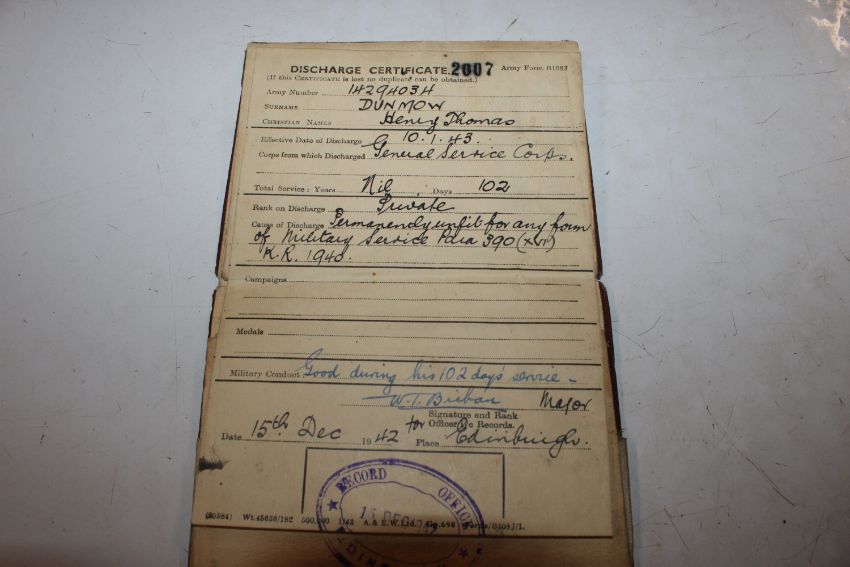 DISCHARGE CERTIFICATE. 2007 Army Form B108J
(If this CERTIFICATE is lost no duplicate can be obtained.)
Army Number 14294034
SURNAME DUNMOW
CHRISTIAN NAMES Henry Thomas
Effective Date of Discharge 10.1.43.
Corps from which Discharged General Service Corps.
Total Service: Years Nil Days 102
Rank on Discharge Private
Cause of Discharge Permanently unfit for any form
of Military Service Para 390 (xvi)
K.R. 1940.
Campaigns
Medals
Military Conduct Good during his 102 days service
W.J. Major
Signature and Rank
for Officer i/c Records.
Date 15th Dec 1942 Place Edinburgh.
RECORD OFFICE
15 DEC 1942
(20564) Wt.45638/182 500,000 1/42 A. & E.W.Ltd. Gp.698 Forms/B108J/1.